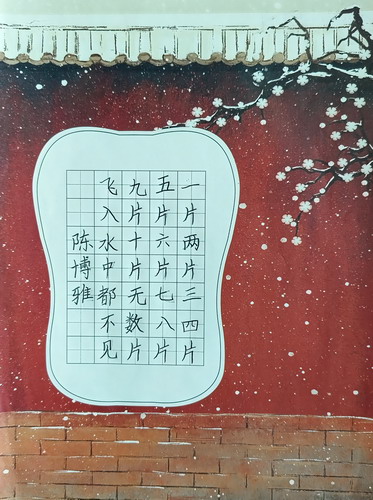 一片两片三四片
五片六片七八片
九片十片无数片
飞入水中都不见
陈博雅